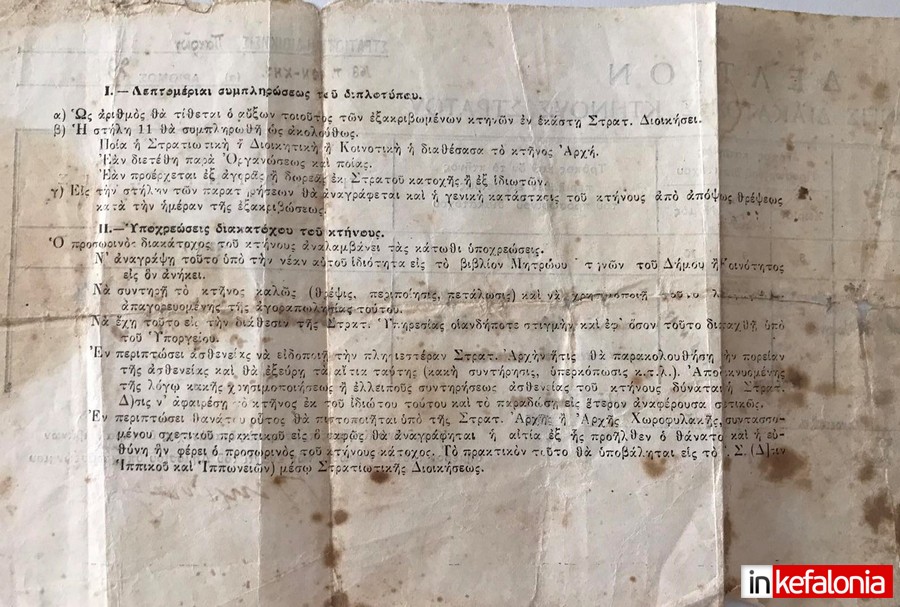 Ι.—Λεπτομέριαι συμπληρώσεως τοῦ διπλοτύπου.
α) Ὡς ἀριθμὸς θὰ τίθεται ὁ αὔξων ποιοῦτος τῶν ἐξακριβωμένων κτηνῶν ἐν ἑκάστῃ Στρατ. Διοικήσει.
β) Ἡ στήλη 11 θὰ συμπληρωθῇ ὡς ἀκολούθως.
Ποία ἡ Στρατιωτικὴ ἢ Διοικητικὴ ἢ Κοινοτικὴ ἡ διαθέσασα τὸ κτῆνος Ἀρχή.
Ἐὰν διετέθη παρὰ Ὀργανώσεως καὶ ποίας.
Ἐὰν προέρχεται ἐξ ἀγορᾶς ἢ δωρεᾶς ἐκ Στρατοῦ κατοχῆς ἢ ἐξ ἰδιωτῶν.
γ) Εἰς τὴν στήλην τῶν παρατηρήσεων θὰ ἀναγράφεται καὶ ἡ γενικὴ κατάστασις τοῦ κτήνους ἀπὸ ἀπόψεως θρέψεως
κατὰ τὴν ἡμέραν τῆς ἐξακριβώσεως.
ΙΙ.—Ὑποχρεώσεις διακατόχου τοῦ κτήνους.
Ὁ προσωρινὸς διακάτοχος τοῦ κτήνους ἀναλαμβάνει τὰς κάτωθι ὑποχρεώσεις.
Ν' ἀναγράψῃ τοῦτο ὑπὸ τὴν νέαν αὐτοῦ ἰδιότητα εἰς τὸ βιβλίον Μητρώου τηνῶν τοῦ Δήμου ἢ Κοινότητος
εἰς ὃν ἀνήκει.
Νὰ συντηρῇ τὸ κτῆνος καλῶς (θρέψις, περιποίησις, πετάλωσις) καὶ νὰ χρησιμοποιῇ
ἀπαγορευομένης τῆς ἀγοραπωλησίας τούτου.
Νὰ ἔχῃ τοῦτο εἰς τὴν διάθεσιν τῆς Στρατ. Ὑπηρεσίας οἱανδήποτε στιγμὴν καὶ ἐφ' ὅσον τοῦτο διαταχθῇ ὑπὸ
τοῦ Ὑπουργείου.
Ἐν περιπτώσει ἀσθενείας νὰ εἰδοποιῇ τὴν πλησιεστέραν Στρατ. Ἀρχὴν ἥτις θὰ παρακολουθήσῃ τὴν πορείαν
τῆς ἀσθενείας καὶ θὰ ἐξεύρῃ τὰ αἴτια ταύτης (κακὴ συντήρησις, ὑπερκόπωσις κ.τ.λ.). Ἀποδεικνυομένης
τῆς λόγῳ κακῆς χρησιμοποιήσεως ἢ ἐλλειποῦς συντηρήσεως ἀσθενείας τοῦ κτήνους δύναται ἡ Στρατ.
Δ)σις ν' ἀφαιρέσῃ τὸ κτῆνος ἐκ τοῦ ἰδιώτου τούτου καὶ τὸ παραδώσῃ εἰς ἕτερον ἀναφέρουσα σχετικῶς.
Ἐν περιπτώσει θανάτου οὗτος θὰ πιστοποιῆται ὑπὸ τῆς Στρατ. Ἀρχῆς ἢ Ἀρχῆς Χωροφυλακῆς, συντασσο-
μένου σχετικοῦ πρακτικοῦ εἰς ὃ σαφῶς θὰ ἀναγράφηται ἡ αἰτία ἐξ ἧς προῆλθεν ὁ θάνατο καὶ ἡ εὐ-
θύνη ἣν φέρει ὁ προσωρινὸς τοῦ κτήνους κάτοχος. Τὸ πρακτικὸν τοῦτο θὰ ὑποβάληται εἰς τὸ Σ. (Δ)σιν
Ἱππικοῦ καὶ Ἱππωνειῶν) μέσῳ Στρατιωτικῆς Διοικήσεως.
inkefalonia